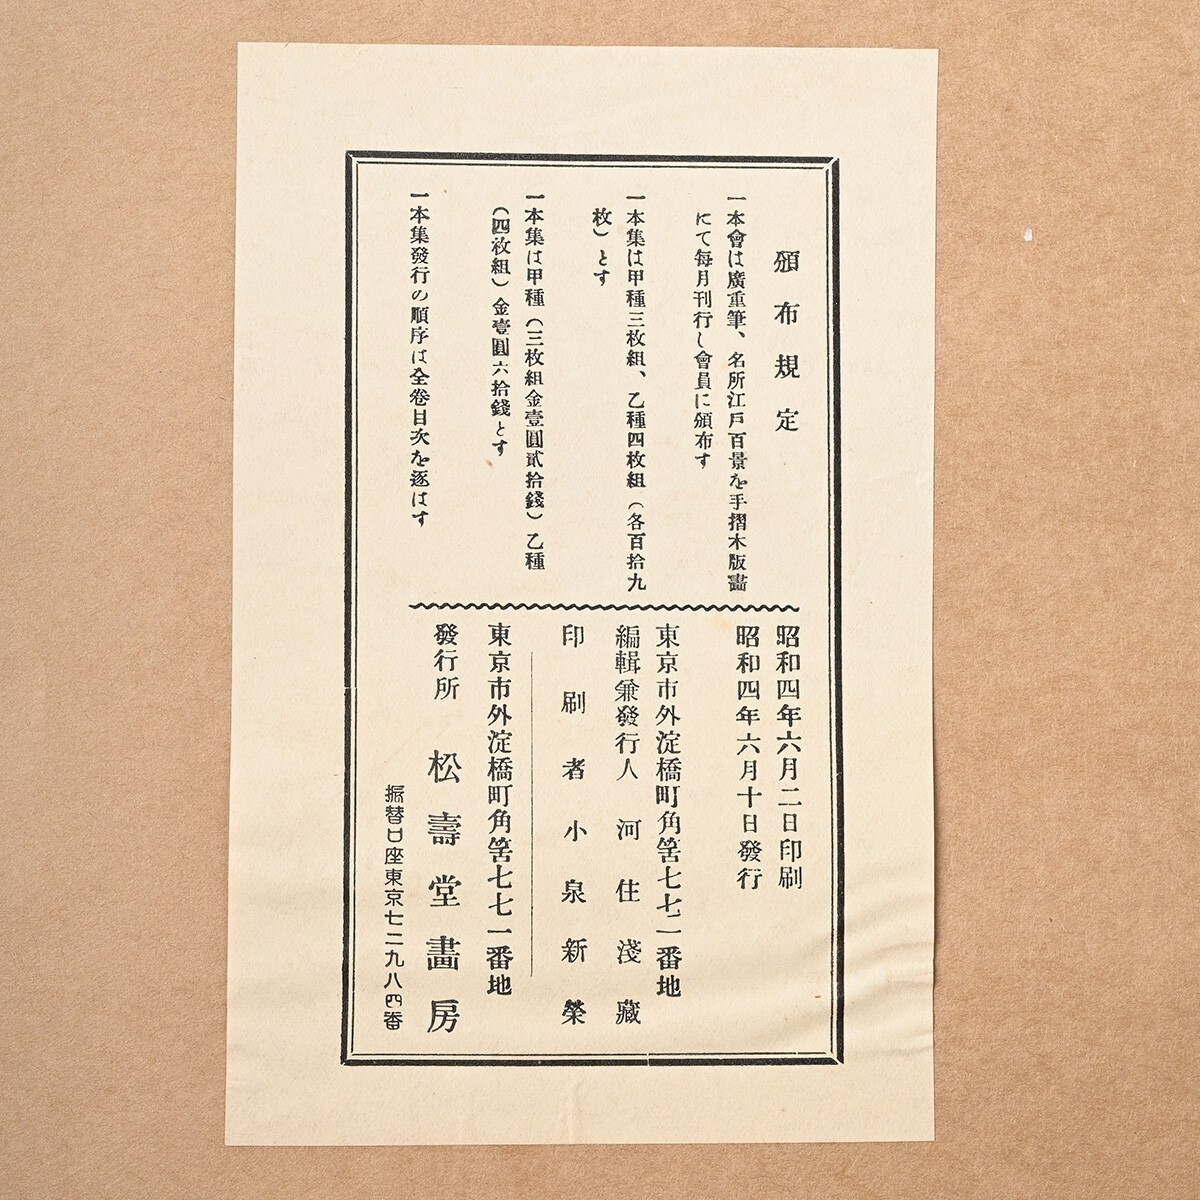 頒布規定
一本會は廣重筆、名所江戸百景を手摺木版畵
にて每月刊行し會員に頒布す
一本集は甲種三枚組、乙種四枚組（各百拾九
枚）とす
一本集は甲種（三枚組金壹圓貳拾錢）乙種
（四枚組）金壹圓六拾錢とす
一本集發行の順序は全卷目次を逐はす
昭和四年六月二日印刷
昭和四年六月十日發行
東京市外淀橋町角筈七七一番地
編輯兼發行人 河住淺藏
印刷者小泉新榮
東京市外淀橋町角筈七七一番地
發行所 松壽堂畫房
振替口座東京七二九八四番